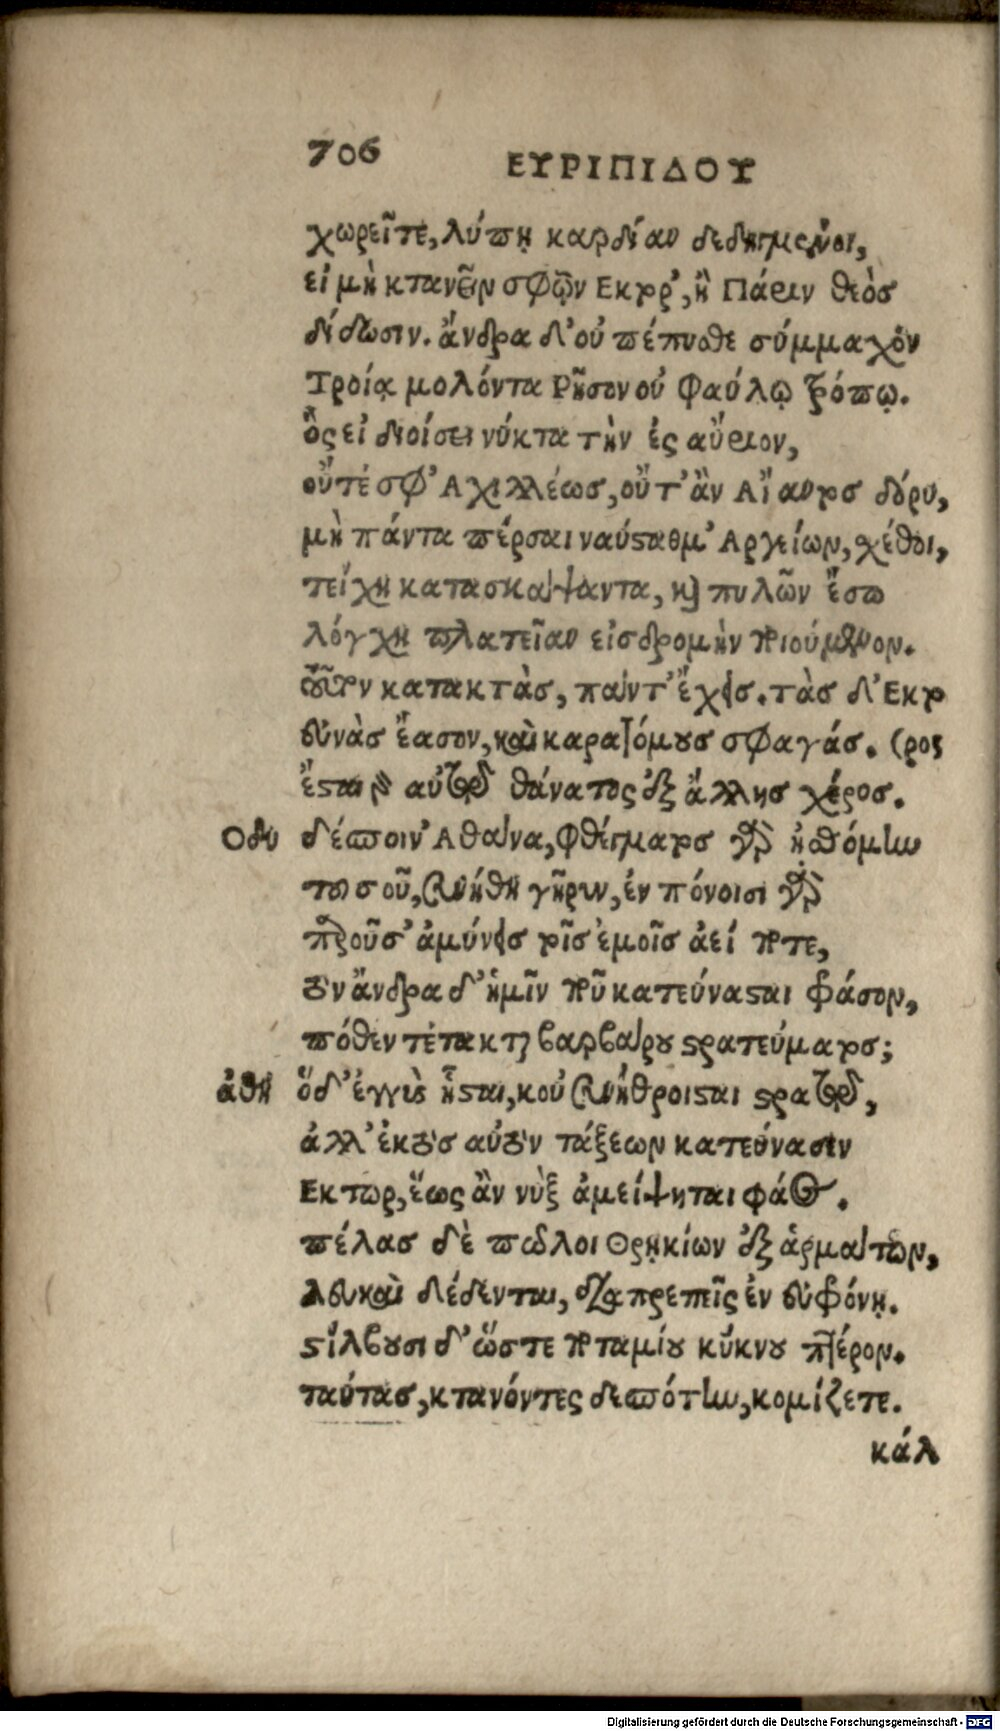 706 ΕΥΡΙΠΙΔΟΥ
χωρεῖτε, λύπῃ καρδίαν δεδηγμένοι,
εἰ μὴ κτανεῖν σφῷν Εκτορ', ἢ Πάριν θεὸς
δίδωσιν. ἄνδρα δ' οὐ πέπυσθε σύμμαχον
Τροίᾳ μολόντα Ρῆσον οὐ φαύλῳ τρόπῳ.
ὃς εἰ διοίσει νύκτα τὴν ἐς αὔριον,
οὔτέ σφ' Αχιλλέως, οὔτ' ἂν Αἴαντος δόρυ,
μὴ πάντα πέρσαι ναύσταθμ' Αργείων, χέθοι,
τείχη κατασκάψαντα, καὶ πυλῶν ἔσω
λόγχῃ πλατεῖαν εἰσδρομὴν ποιούμενον.
τοῦτον κατακτὰς, πάντ' ἔχεις. τὰς δ' Εκτο
εὐνὰς ἔασον, καὶ καρατόμους σφαγάς. (ρος
ἔσται γὰρ αὐτῷ θάνατος ἐξ ἄλλης χέρος.
Οδυ δέσποιν' Αθάνα, φθέγματος γὰρ ᾐσθόμην
τοῦ σοῦ, συνήθη γῆρυν, ἐν πόνοισι γὰρ
παροῦσ' ἀμύνεις τοῖς ἐμοῖς ἀεί ποτε,
τὸν ἄνδρα δ' ἡμῖν ποῦ κατεύνασται φράσον,
πόθεν τέτακται βαρβάρου στρατεύματος;
ἀθη ὅδ' ἐγγὺς ἧσται, κοὐ συνήθροισται στρατῷ,
ἀλλ' ἐκτὸς αὐτὸν τάξεων κατεύνασεν
Εκτωρ, ἕως ἂν νὺξ ἀμείψηται φάος.
πέλας δὲ πῶλοι Θρῃκίων ἐξ ἁρμάτων,
λευκαὶ δέδενται, διαπρεπεῖς ἐν εὐφρόνῃ.
στίλβουσι δ' ὥστε ποταμίου κύκνου πτέρον.
ταύτας, κτανόντες δεσπότην, κομίζετε.
κάλ
Digitalisierung gefördert durch die Deutsche Forschungsgemeinschaft - DFG